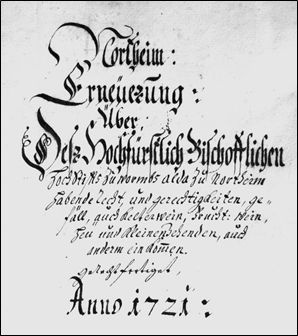 Northeim:
Erneüerung:
Über
Desz Hochfürstlich Bischofflichen
Hochstiffts zu Wormbs alda zu Northeim
habende recht, und gerechtigkeiten, ge=
fäll, auch Keller wein, Frucht: Wein,
Heü und Kleinen Zehenden, auch
anderm einkommen.
gerechtfertiget,
Anno 1721: